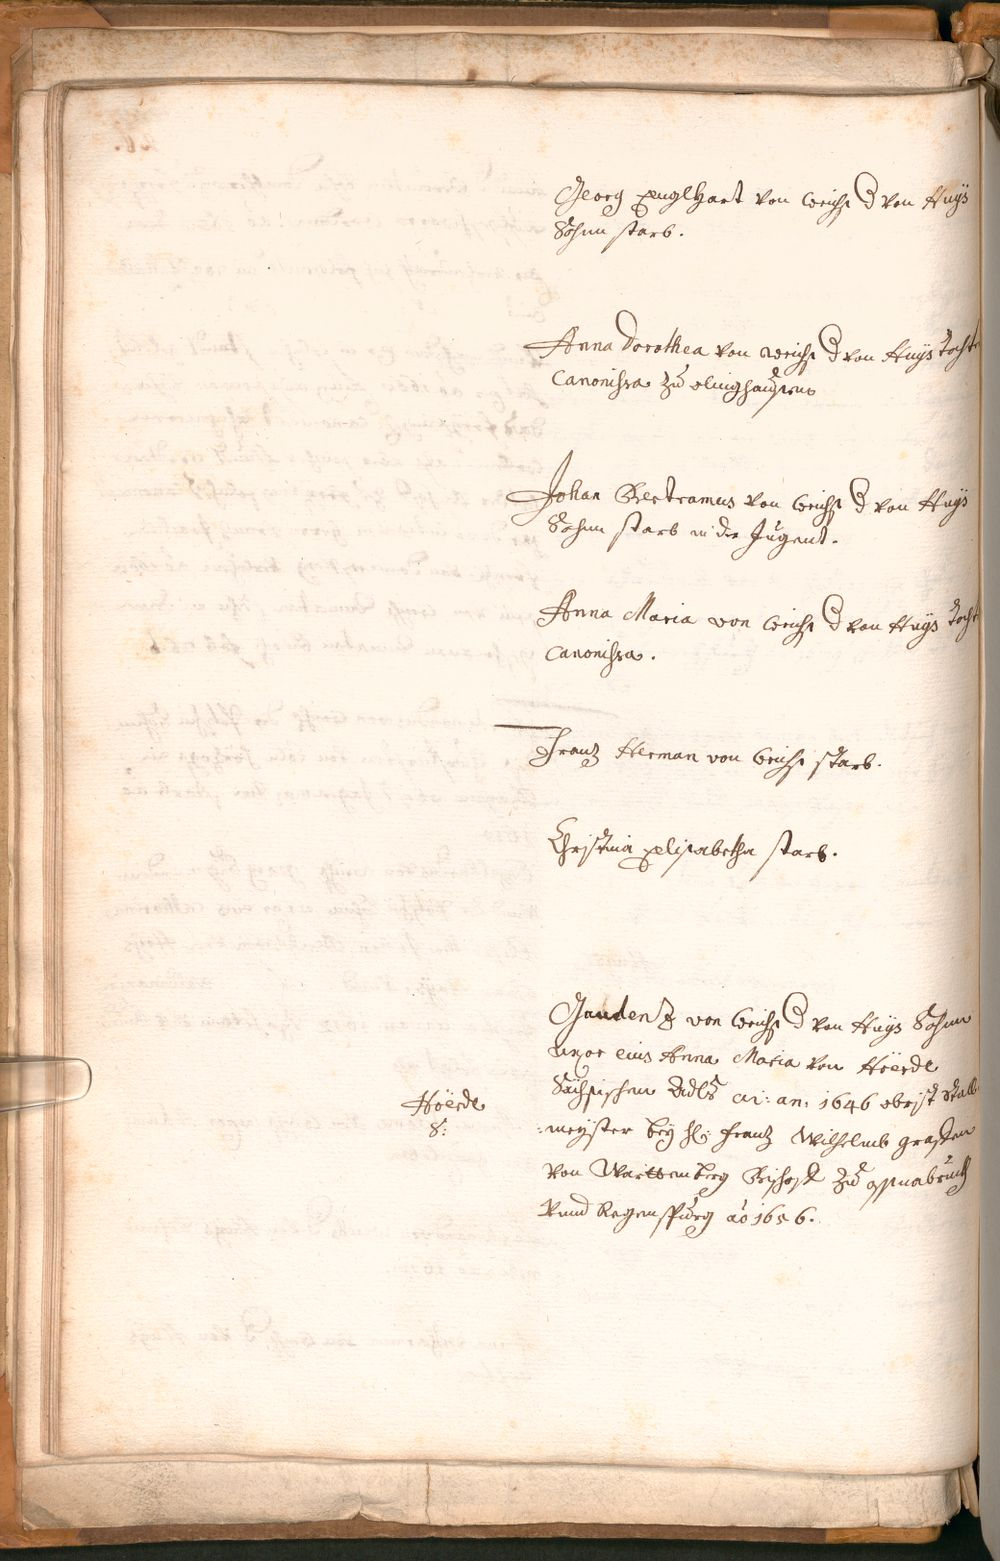 Georg Engelhart von Weichs d von Huÿs
Sohnn starb.
Anna Dorothea von Weichs d von Huÿs Tochter
Canonissa Zu olinghausenn
Johan Bertramus von Weichs d von Huÿs
Sohnn starb in der Jugent.
Anna Maria von Weichs d von Huÿs Tocht
Canonissa.
Frantz Herman von Weichs starb.
Christina Elisabetha starb.
Gaudentz von Weichs d von Huÿs Sohnn
uxor eius Anna Maria von Höerde
Höerde
8:
Sächsischen Adels an: 1646 obrist Stall
meÿster beÿ Frantz Wilhelmb graffen
von Warttemberg Bischoff Zu Ossnabruck
vnnd Regenspurg ao 1656.